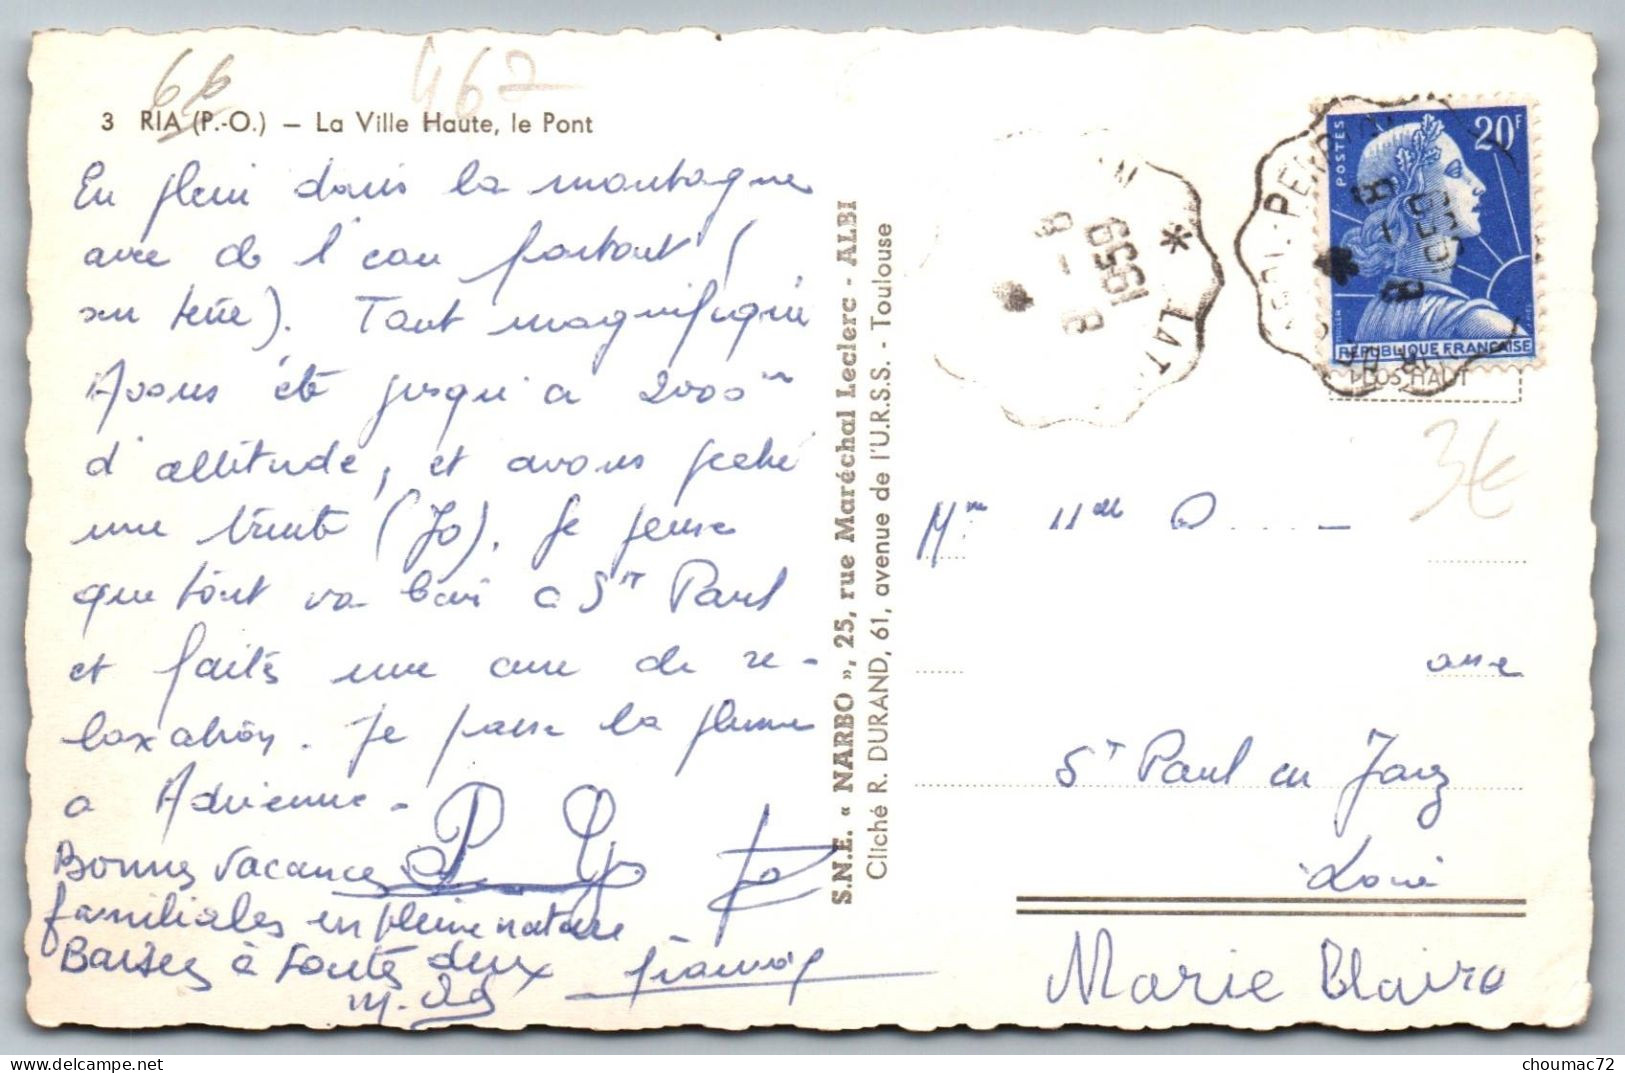 66
467
3 RIA (P.-O.) — La Ville Haute, le Pont
En plein dans la montagne
avec de l'eau partout (
sur terre). Tout magnifique
Avons été jusqu'a 2000 m
d'altitude, et avons peché
une truite (Jo). Je pense
que tout va bien a St Paul
et faites une cure de re-
laxation. Je passe la plume
a Adrienne -
Bonnes vacances
familiales en pleine nature
Baisers à toutes deux
S.N.E. « NARBO », 25, rue Maréchal Leclerc - ALBI
Cliché R. DURAND, 61, avenue de l'U.R.S.S. - Toulouse
* LAT
8 - 8
1959
PERPI
8 - 8
1959
POSTES
20F
RÉPUBLIQUE FRANÇAISE
PLUS HAUT
3€
Mme
D
St Paul en Jarez
Loire
Marie Claire
choumac72